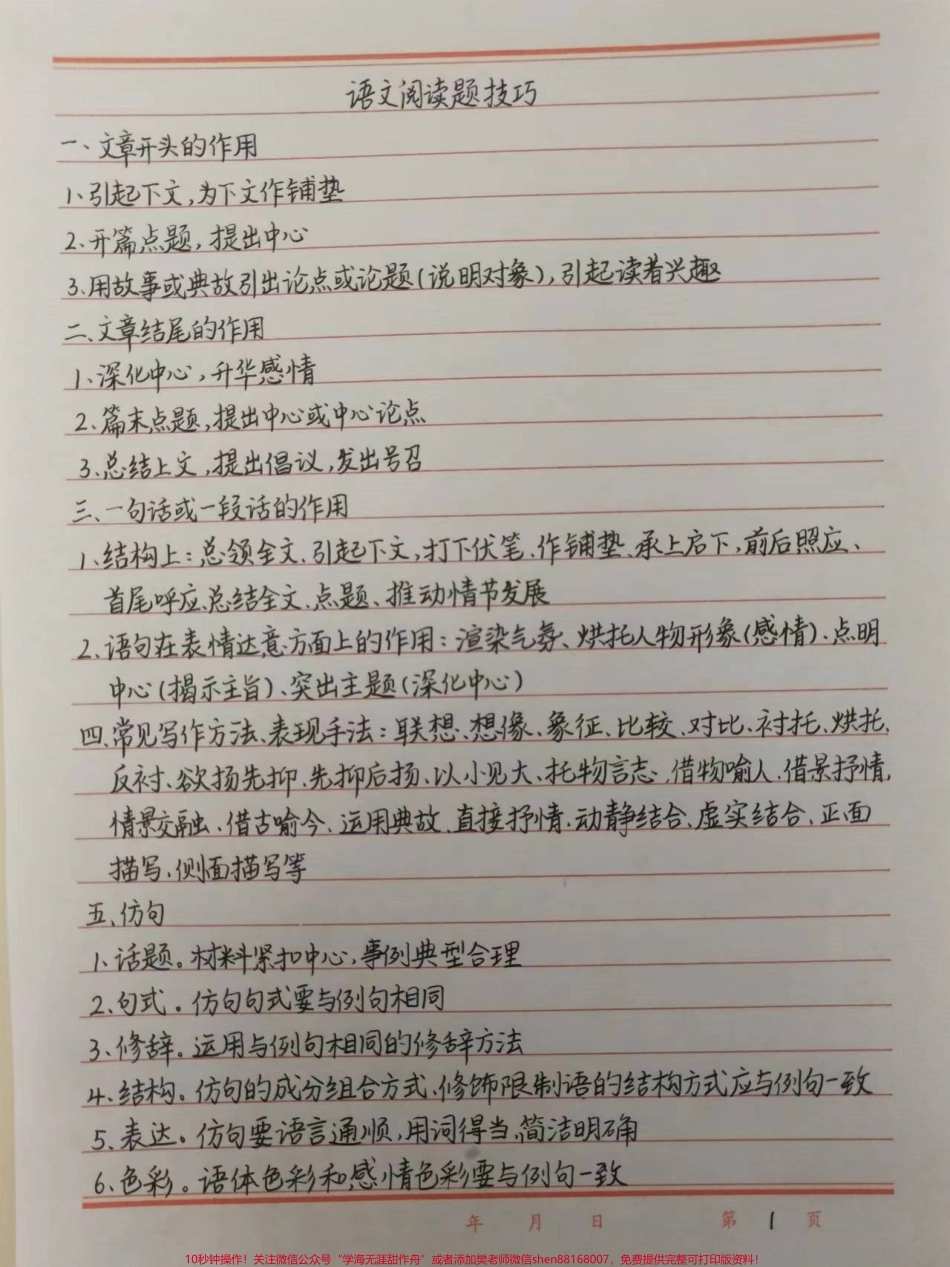 语文阅读题技巧
一、文章开头的作用
1、引起下文,为下文作铺垫
2、开篇点题,提出中心
3、用故事或典故引出论点或论题(说明对象),引起读者兴趣
二、文章结尾的作用
1、深化中心,升华感情
2、篇末点题,提出中心或中心论点
3、总结上文,提出倡议,发出号召
三、一句话或一段话的作用
1、结构上:总领全文、引起下文,打下伏笔、作铺垫、承上启下,前后照应、
首尾呼应、总结全文、点题、推动情节发展
2、语句在表情达意方面上的作用:渲染气氛、烘托人物形象(感情)、点明
中心(揭示主旨)、突出主题(深化中心)
四、常见写作方法、表现手法:联想、想像、象征、比较、对比、衬托、烘托、
反衬、欲扬先抑、先抑后扬、以小见大、托物言志、借物喻人、借景抒情、
情景交融、借古喻今、运用典故、直接抒情、动静结合、虚实结合、正面
描写、侧面描写等
五、仿句
1、话题。材料紧扣中心,事例典型合理
2、句式。仿句句式要与例句相同
3、修辞。运用与例句相同的修辞方法
4、结构。仿句的成分组合方式、修饰限制语的结构方式应与例句一致
5、表达。仿句要语言通顺,用词得当、简洁明确
6、色彩。语体色彩和感情色彩要与例句一致
年 月 日 第 1 页
10秒钟操作!关注微信公众号“学海无涯甜作舟”或者添加樊老师微信shen88168007,免费提供完整可打印版资料!